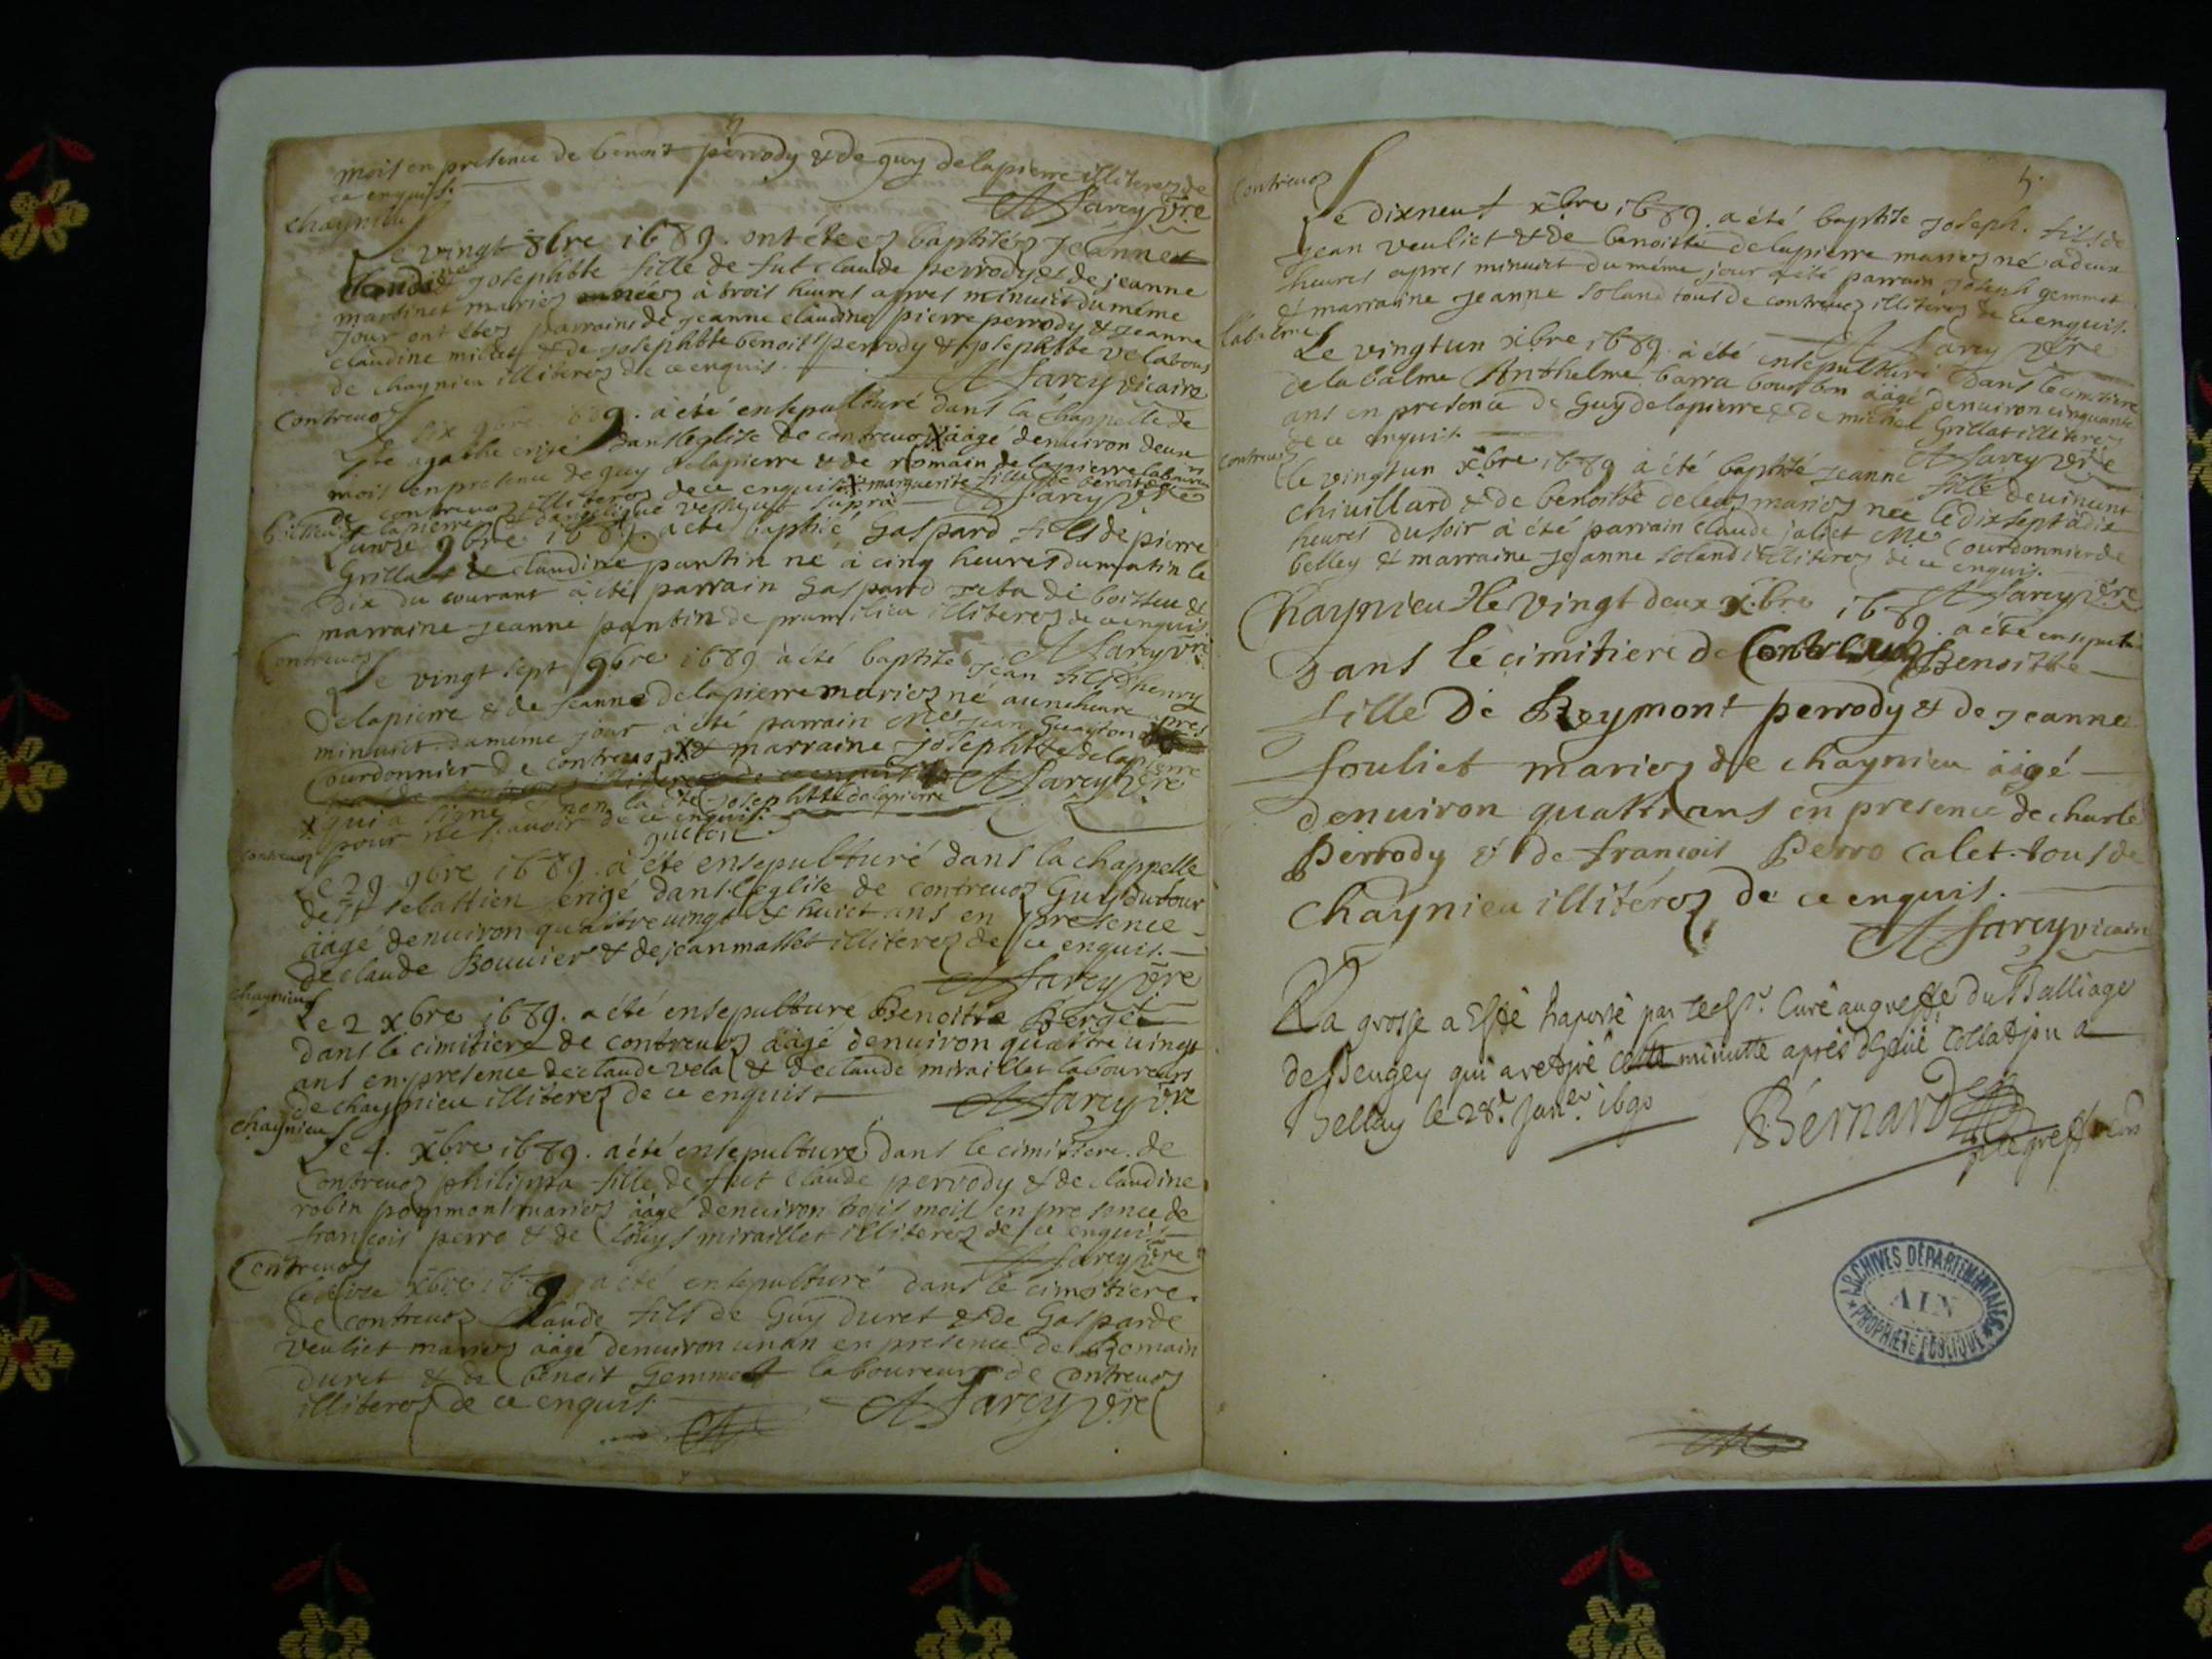 mois en presence de benoit perrody & de guy delapierre illiterez de
ce enquis.
A farcy vre
chaynieu
Le vingt 8bre 1689. ont étées baptisées Jeanne
claudine & Josephtte fille de fut claude perrody & de jeanne
martinet mariez nées à trois heures apres minuict du méme
Jour ont étez parrains de jeanne claudine pierre perrody & Jeanne
claudine & de Josephtte benoist perrody & Josephtte
de chaynieu illiterez de ce enquis.
A farcy vicaire
Contreuoz
Le dix 9bre 1689. a été ensepulturé dans la chappelle de
Ste agathe erigé dans l'eglise de contreuoz X äagé denuiron deux
mois en presence de guy delapierre & de Romain delapierre laboureurs
de contreuoz illiterez de ce enquis. X marguerite fille de benoit
A farcy vre
Lunze 9bre 1689. a été baptisé Gaspard fils de pierre
Grillat & de claudine pantin né à cinq heures du matin le
dix du courant a été parrain Gaspard de boissieu &
marraine Jeanne pantin de illiterez de ce enquis
A farcy vre
Contreuoz
Le vingt sept 9bre 1689 a été baptisé Jean fils d'henry
delapierre & de Jeanne delapierre mariez né a une heure apres
minuict du meme jour a été parrain Me Jean
Courdonnier de contreuoz X & marraine josephtte delapierre
A farcy vre
X qui a signé non la dite josephtte delapierre
pour ne scavoir de ce enquis.
contreuoz
Le 29 9bre 1689. a été ensepulturé dans la chappelle
de st sebastien erigé dans l'eglise de contreuoz Guy dufour
äagé denuiron quattre uingt & huict ans en presence
de claude Bouuier & de jean masset illiterez de ce enquis.
A farcy vre
chaynieu
Le 2 xbre 1689. a été ensepulture Benoitte Berget
dans le cimitiere de contreuoz äagé denuiron quattre uingt
ans en presence de claude vela & de claude miraillet laboureurs
de chaynieu illiterez de ce enquis.
A farcy vre
chaynieu
Le 4. xbre 1689. a été ensepulturé dans le cimitiere de
Contreuoz philippa fille de fut claude perrody & de claudine
robin pommont mariez äagé denuiron trois mois en presence de
francois perro & de Louys miraillet illiterez de ce enquis
A farcy vre
Contreuoz
xbre 1689 a été ensepulturé dans le cimitiere
de contreuoz Claude fils de Guy duret & de Gasparde
veuliet mariez äagé denuiron un an en presence de Romain
duret & de benoit Gemmet laboureurs de contreuoz
illiterez de ce enquis.
A farcy vre
5.
Contreuoz
Le dixneuf xbre 1689. a été baptise Joseph. fils de
Jean veuliet & de benoitte delapierre mariez né a deux
heures apres minuict du méme jour a été parrain Joseph gemmet
& marraine Jeanne soland tous de contreuoz illiterez de ce enquis.
A farcy vre
Labalme
Le vingtun xbre 1689. a été ensepulturé dans le cimitiere
de la balme Anthelme barra bourbon äagé denuiron cinquante
ans en presence de Guy delapierre & de michel Grillat illiterez
de ce enquis.
A farcy vre
contreuoz
le vingtun xbre 1689 a été baptisé Jeanne fille de uincent
chiuillard & de benoitte deleaz mariez née le dixsept a dix
heures du soir a été parrain claude joliet Me Courdonnier de
belley & marraine Jeanne soland illiterez de ce enquis.
A farcy vre
Chaynieu Le vingt deux xbre 1689. a été ensepulturé
Dans le cimitiere de Contreuoz Benoitte
fille de Reymont perrody & de jeanne
souliet mariez de chaynieu äagé
denuiron quattre ans en presence de charle
Perrody & de francois Perro calet. tous de
Chaynieu illitérez de ce enquis.
A farcy vicaire
La grosse a Esté Raporté par ledt Sr. Curé au greffe du Balliage
de Beugey qui a retiré cette minutte aprés collation a
Belley le 28e Janer. 1690
Bernard
ARCHIVES DÉPARTEMENTALES
AIN
PROPRIÉTÉ PUBLIQUE